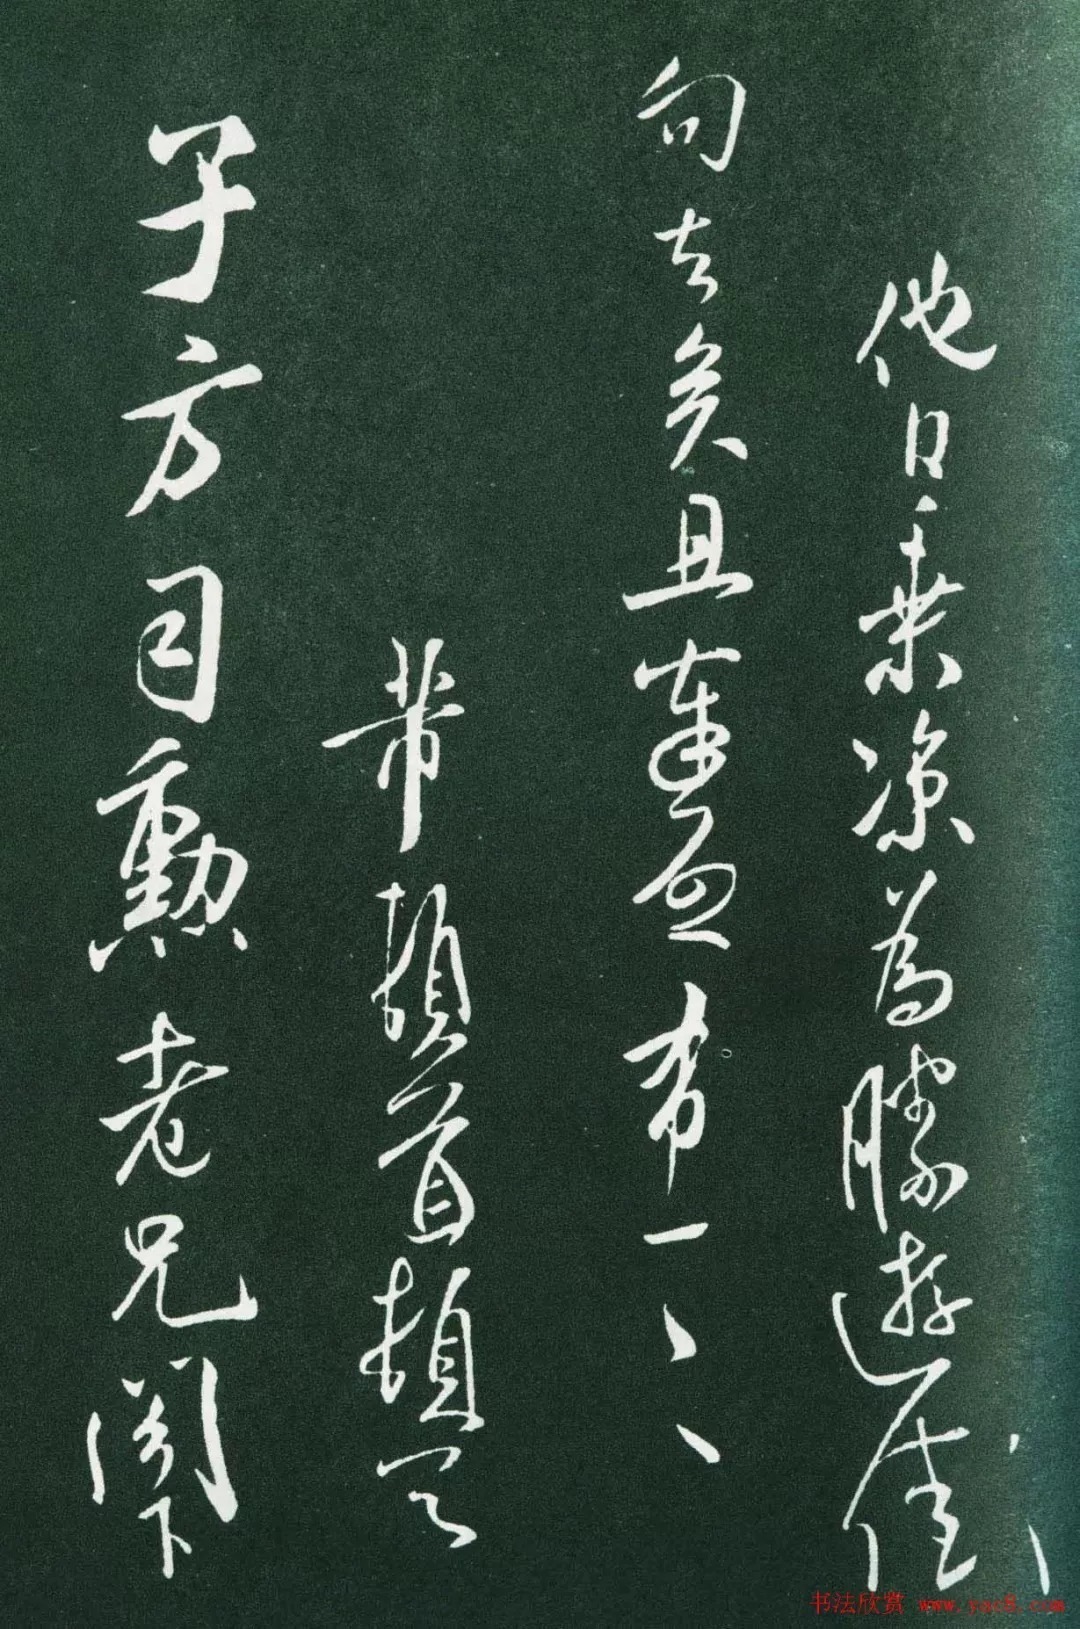 他日乘凉為勝遊佳
句去矣且布一
芾頓首頓首
子方司勳老兄閣下
书法欣赏 www.yac8.com